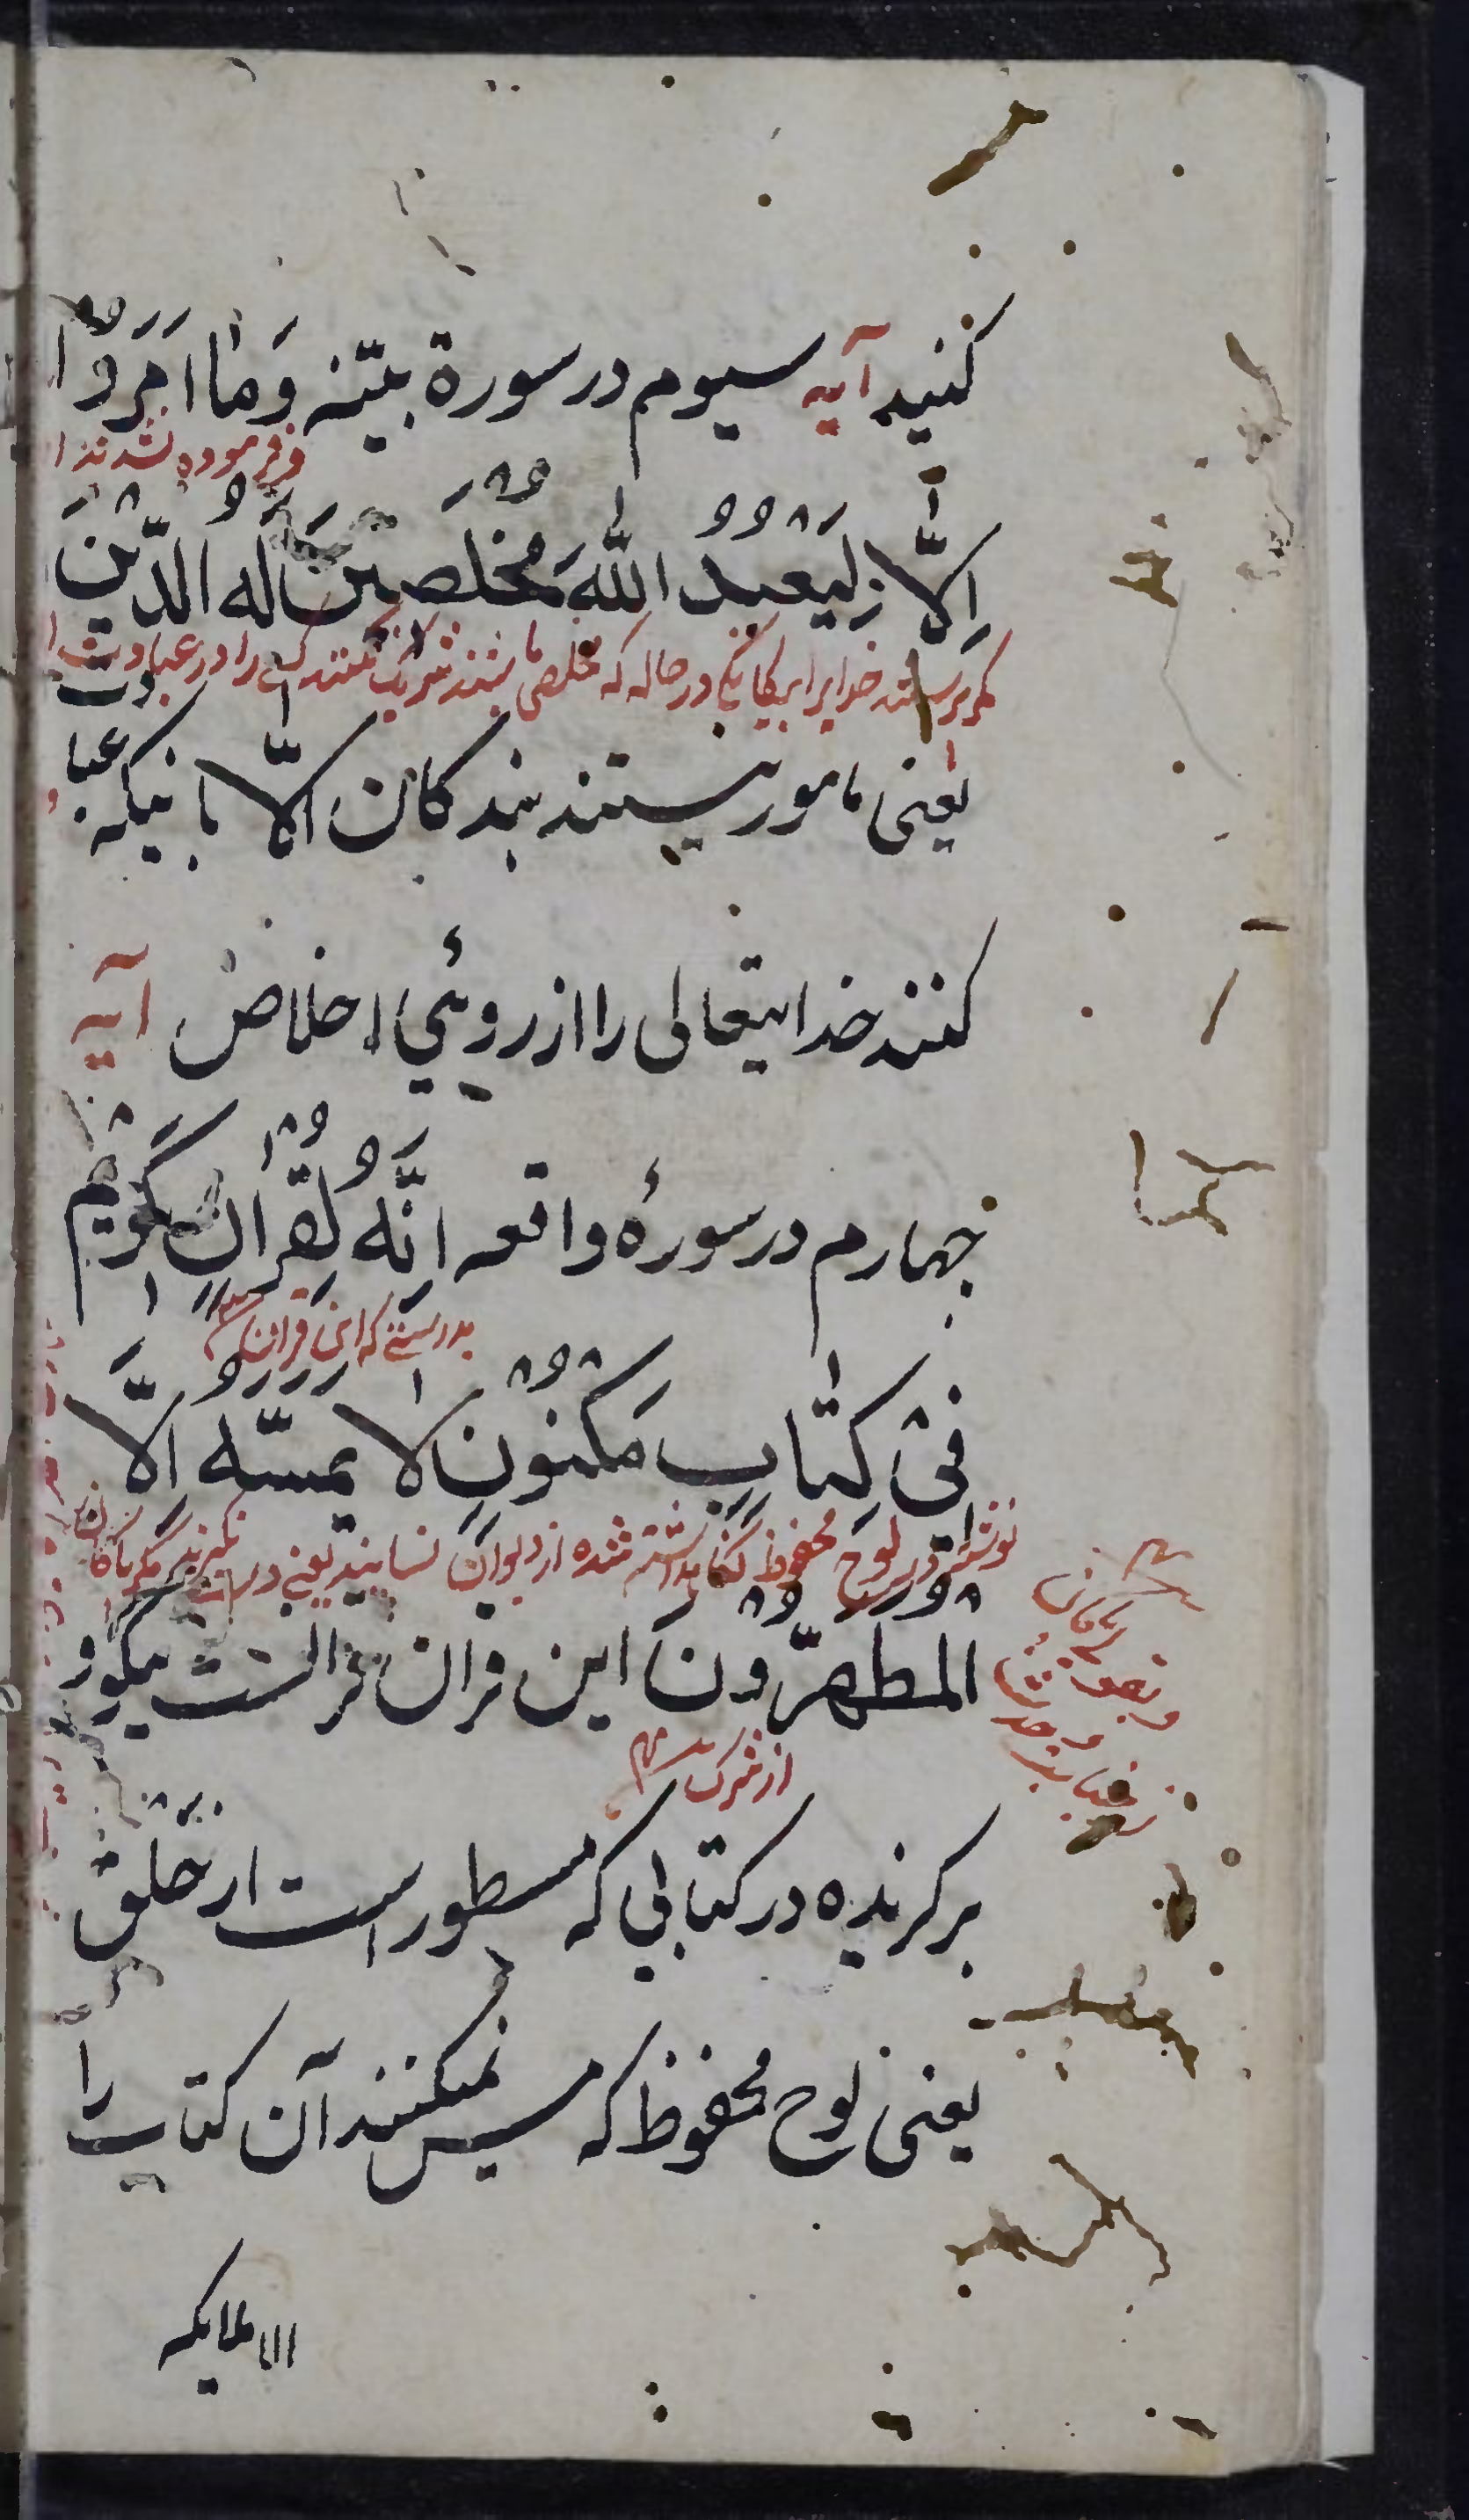 کنید آیه سیوم در سورة بیّنه وَمٰا اُمِرُوْا
و فرموده نشدند
اِلَّا لِیَعْبُدُوا اللّٰهَ مُخْلِصِیْنَ لَهُ الدِّیْنَ
مگر پرستند خدایرا بیگانگی در حاله که مخلص باشند شریک نکنند کسے را در عبادت
یعنی مامور نیستند بندکان الّا بانیکه عبادت
کنند خدایتعالی را از روئي اخلاص آیه
چهارم در سورهٔ واقعه اِنَّهُ لَقُرْاٰنٍ کَرِیْمٍ
بدرستے که این قران
فِیْ کِتٰابٍ مَکْنُوْنٍ لا یَمَسُّهُ اِلَّا
نوشته در لوح محفوظ نگاهداشته شده از دیوان نسایند یعنے درست نکیرند مگر پاکان
المُطَهَّرُوْنَ این قران قرانست نیکو و
از شرک
برکزیده در کتابی که مسطور است از خلق
یعنی لوح محفوظ که مس نمیکنند آن کتاب را
الا ملایکه